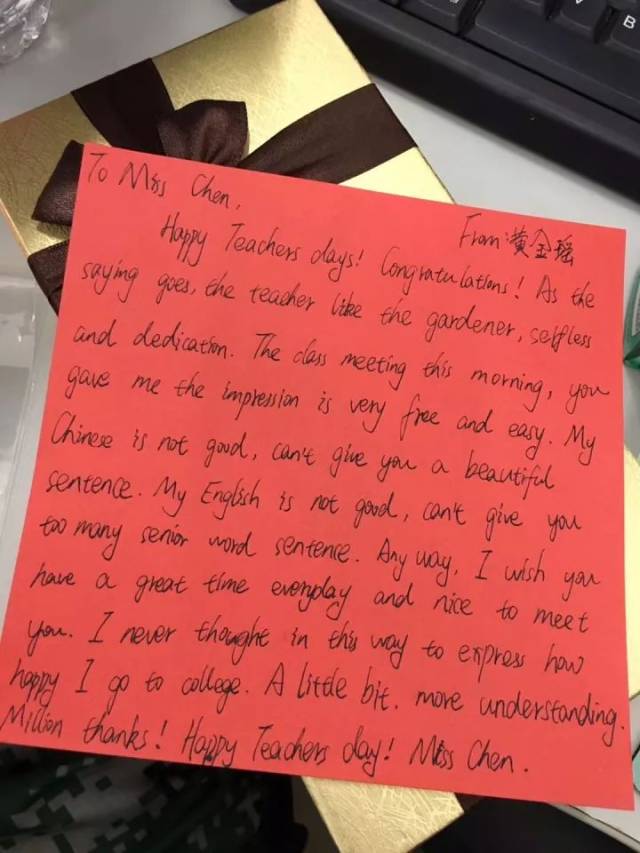 To Miss Chen,
From 黄金瑶
Happy Teachers days! Congratulations! As the
saying goes, the teacher like the gardener, selfless
and dedication. The class meeting this morning, you
gave me the impression is very free and easy. My
Chinese is not good, can't give you a beautiful
sentence. My English is not good, can't give you
too many senior word sentence. Any way, I wish you
have a great time everyday and nice to meet
you. I never thought in this way to express how
happy I go to college. A little bit. more understanding.
Million thanks! Happy Teachers day! Miss Chen.